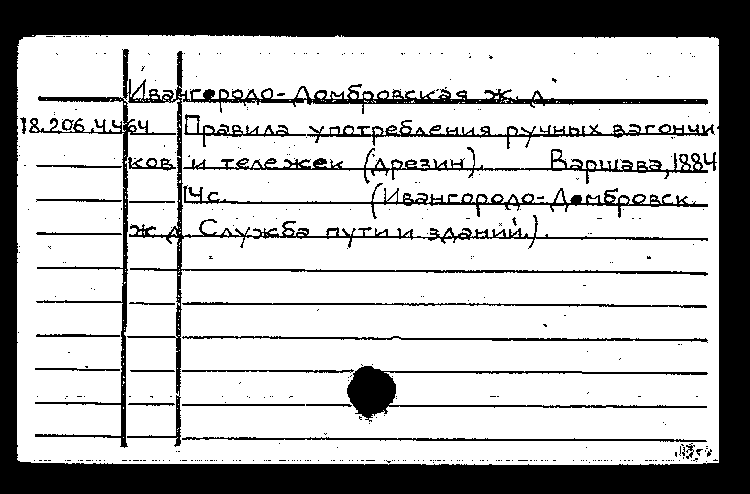 Ивангородо-Домбровская ж. д.
18.206.4.464 Правила употребления ручных вагончи-
ков и тележек (дрезин). Варшава, 1884
14с. (Ивангородо-Домбровск.
ж.д. Служба пути и зданий.).